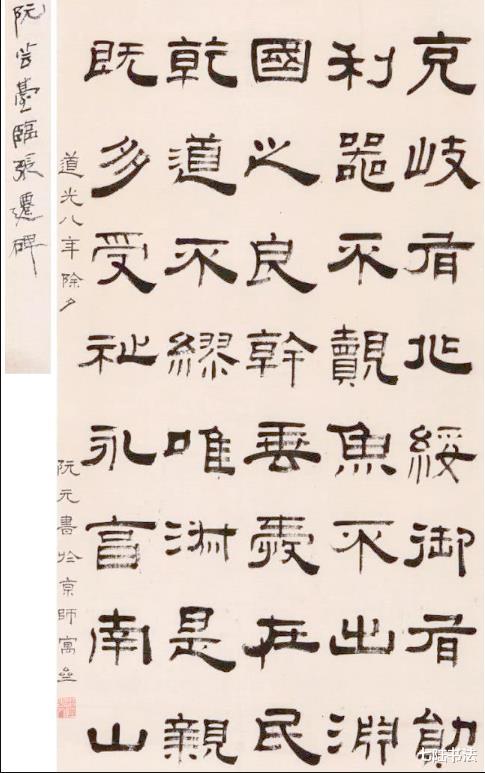 克岐有兆綏御有勛
利器不覿魚不出淵
國之良幹垂愛在民
乾道不繆唯淑是親
既多受祉永享南山
道光八年除夕
阮元書於京師寓
阮芸臺臨張遷碑
七陆书法